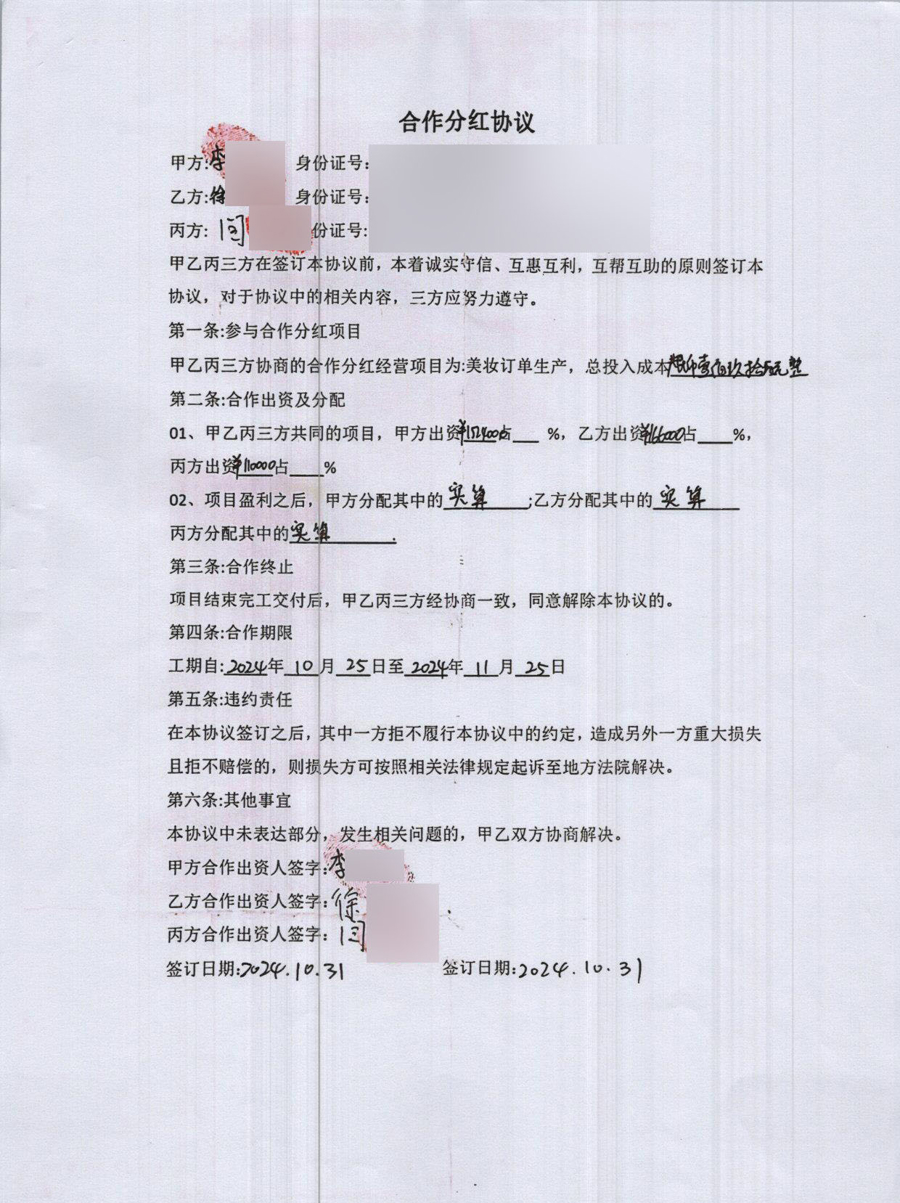 合作分红协议
甲方:李 身份证号:
乙方:徐 身份证号:
丙方: 闫 份证号:
甲乙丙三方在签订本协议前，本着诚实守信、互惠互利，互帮互助的原则签订本
协议，对于协议中的相关内容，三方应努力遵守。
第一条:参与合作分红项目
甲乙丙三方协商的合作分红经营项目为:美妆订单生产，总投入成本
第二条:合作出资及分配
01、甲乙丙三方共同的项目，甲方出资¥152400占___ %，乙方出资¥166000占____%，
丙方出资¥110000占____%
02、项目盈利之后，甲方分配其中的实算;乙方分配其中的实算
丙方分配其中的实算.
第三条:合作终止
项目结束完工交付后，甲乙丙三方经协商一致，同意解除本协议的。
第四条:合作期限
工期自:2024年10月25日至2024年11月25日
第五条:违约责任
在本协议签订之后，其中一方拒不履行本协议中的约定，造成另外一方重大损失
且拒不赔偿的，则损失方可按照相关法律规定起诉至地方法院解决。
第六条:其他事宜
本协议中未表达部分，发生相关问题的，甲乙双方协商解决。
甲方合作出资人签字:李
乙方合作出资人签字:徐
丙方合作出资人签字: 闫
签订日期:2024.10.31 签订日期:2024.10.31